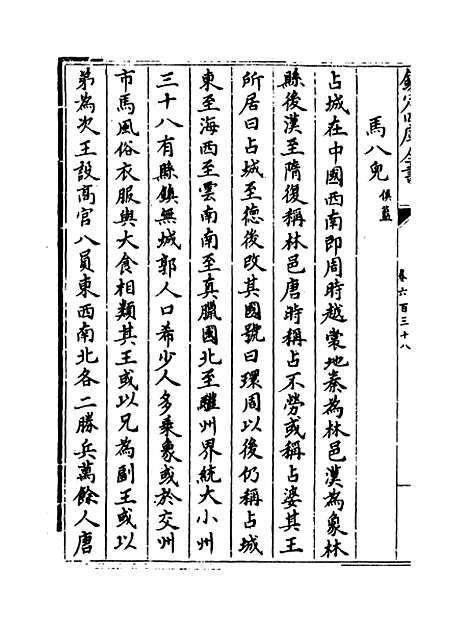 欽定四庫全書
卷六百三十八
馬八兒 俱藍
占城在中國西南即周時越裳地秦為林邑漢為象林
縣後漢至隋復稱林邑唐時稱占不勞或稱占婆其王
所居曰占城至德後改其國號曰環周以後仍稱占城
東至海西至雲南南至真臘國北至驩州界統大小州
三十八有縣鎮無城郭人口希少人多乗象或於交州
市馬風俗衣服與大食相類其王或以兄為副王或以
弟為次王設髙官八員東西南北各二勝兵萬餘人唐